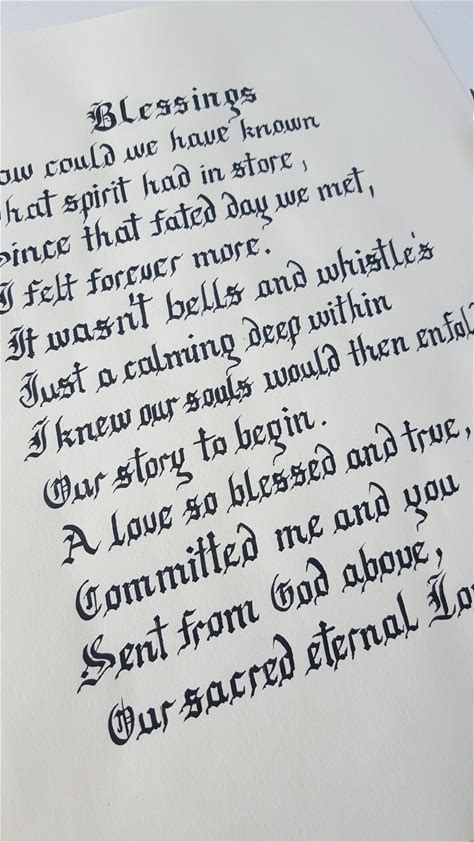 Blessings
ow could we have known
hat spirit had in store,
ince that fated day we met,
I felt forever more.
It wasn't bells and whistle's
Just a calming deep within
I knew our souls would then enfol
Our story to begin.
A love so blessed and true,
Committed me and you
Sent from God above,
Our sacred eternal Lo